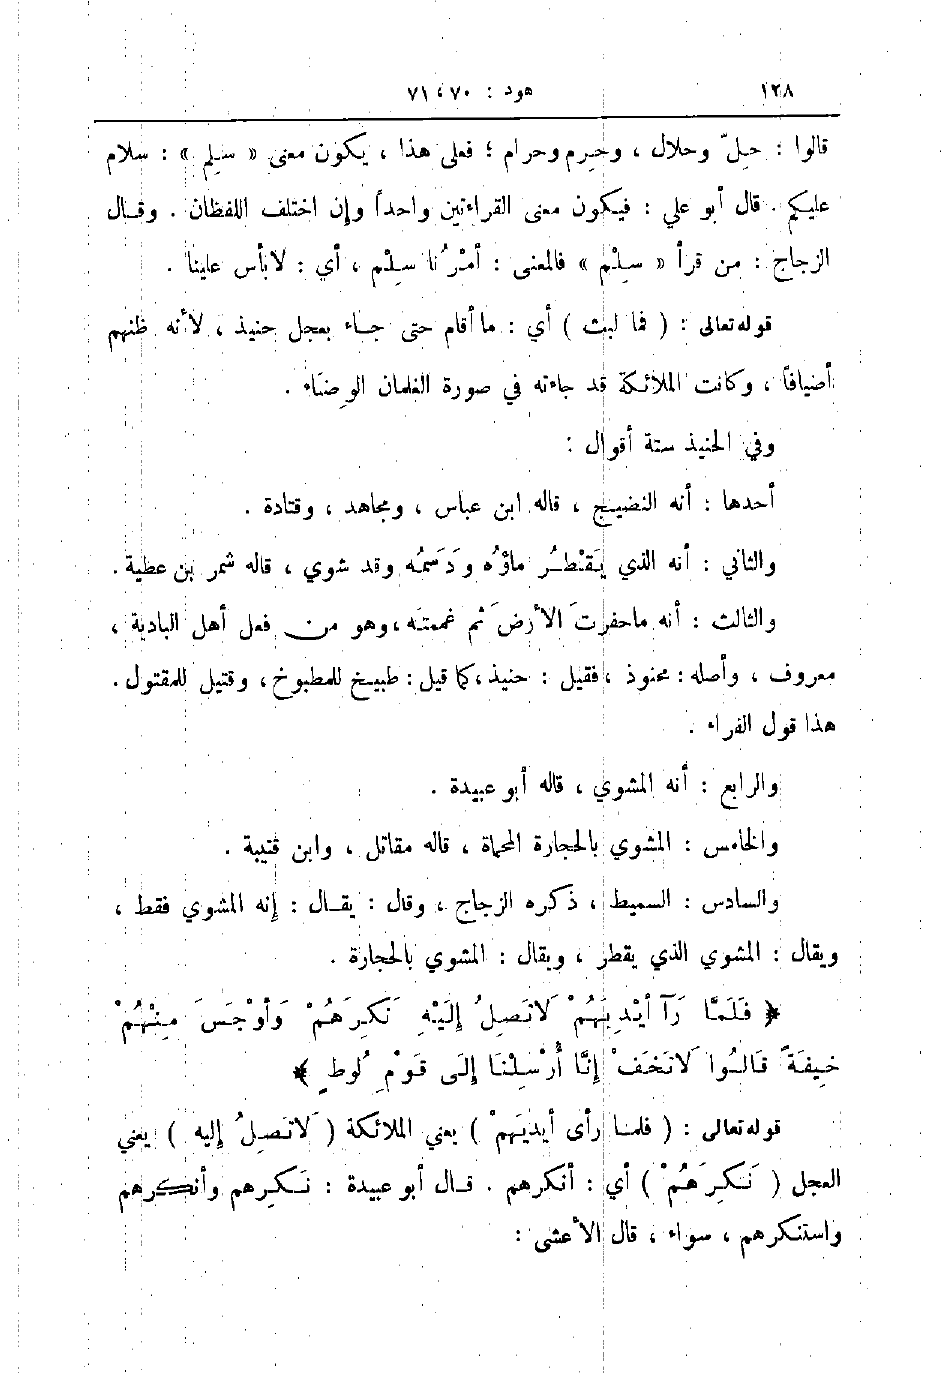 ١٢٨ هود : ٧٠ ، ٧١
قالوا : حِلّ وحلال ، وحِرم وحرام ؛ فعلى هذا ، يكون معنى « سِلم » : سلام
عليكم . قال أبو علي : فيكون معنى القراءتين واحداً وإن اختلف اللفظان . وقال
الزجاج : من قرأ « سِلْم » فالمعنى : أمْرُنا سِلْم ، أي : لابأس علينا .
قوله تعالى : ( فما لبث ) أي : ماأقام حتى جاء بعجل حنيذ ، لأنه ظنهم
أضيافاً ، وكانت الملائكة قد جاءته في صورة الغلمان الوِضَاء .
وفي الحنيذ ستة أقوال :
أحدها : أنه النضيج ، قاله ابن عباس ، ومجاهد ، وقتادة .
والثاني : أنه الذي يَقْطُرُ ماؤُه ودَسَمُه وقد شوي ، قاله شمر بن عطية .
والثالث : أنه ماحفرتَ الأرضَ ثم غممتَه ، وهو من فعل أهل البادية ،
معروف ، وأصله : محنوذ ، فقيل : حنيذ ، كما قيل : طبيخ للمطبوخ ، وقتيل للمقتول .
هذا قول الفراء .
والرابع : أنه المشوي ، قاله أبو عبيدة .
والخامس : المشوي بالحجارة المحماة ، قاله مقاتل ، وابن قتيبة .
والسادس : السميط ، ذكره الزجاج ، وقال : يقال : إنه المشوي فقط ،
ويقال : المشوي الذي يقطر ، ويقال : المشوي بالحجارة .
﴿ فَلَمَّا رَآ أَيْدِيَهُمْ لَاتَصِلُ إِلَيْهِ نَكِرَهُمْ وَأَوْجَسَ مِنْهُمْ
خِيفَةً قَالُوا لَاتَخَفْ إِنَّا أُرْسِلْنَا إِلَى قَوْمِ لُوطٍ ﴾
قوله تعالى : ( فلما رأى أيديَهمْ ) يعني الملائكة ( لَاتَصِلُ إليه ) يعني
العجل ( نَكِرَهُمْ ) أي : أنكرهم . قال أبو عبيدة : نَكِرهم وأنكرهم
واستنكرهم ، سواء ، قال الأعشى :